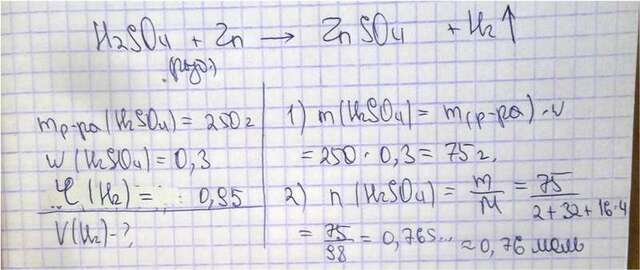 H₂SO₄ + Zn → ZnSO₄ + H₂↑
(разб)
mр-ра(H₂SO₄) = 250г
w(H₂SO₄) = 0,3
φ(H₂) = 0,95
V(H₂) - ?
1) m(H₂SO₄) = m(р-ра)·w
= 250·0,3 = 75г.
2) n(H₂SO₄) = m/M = 75/2+32+16·4
= 75/98 = 0,765... ≈ 0,76 моль